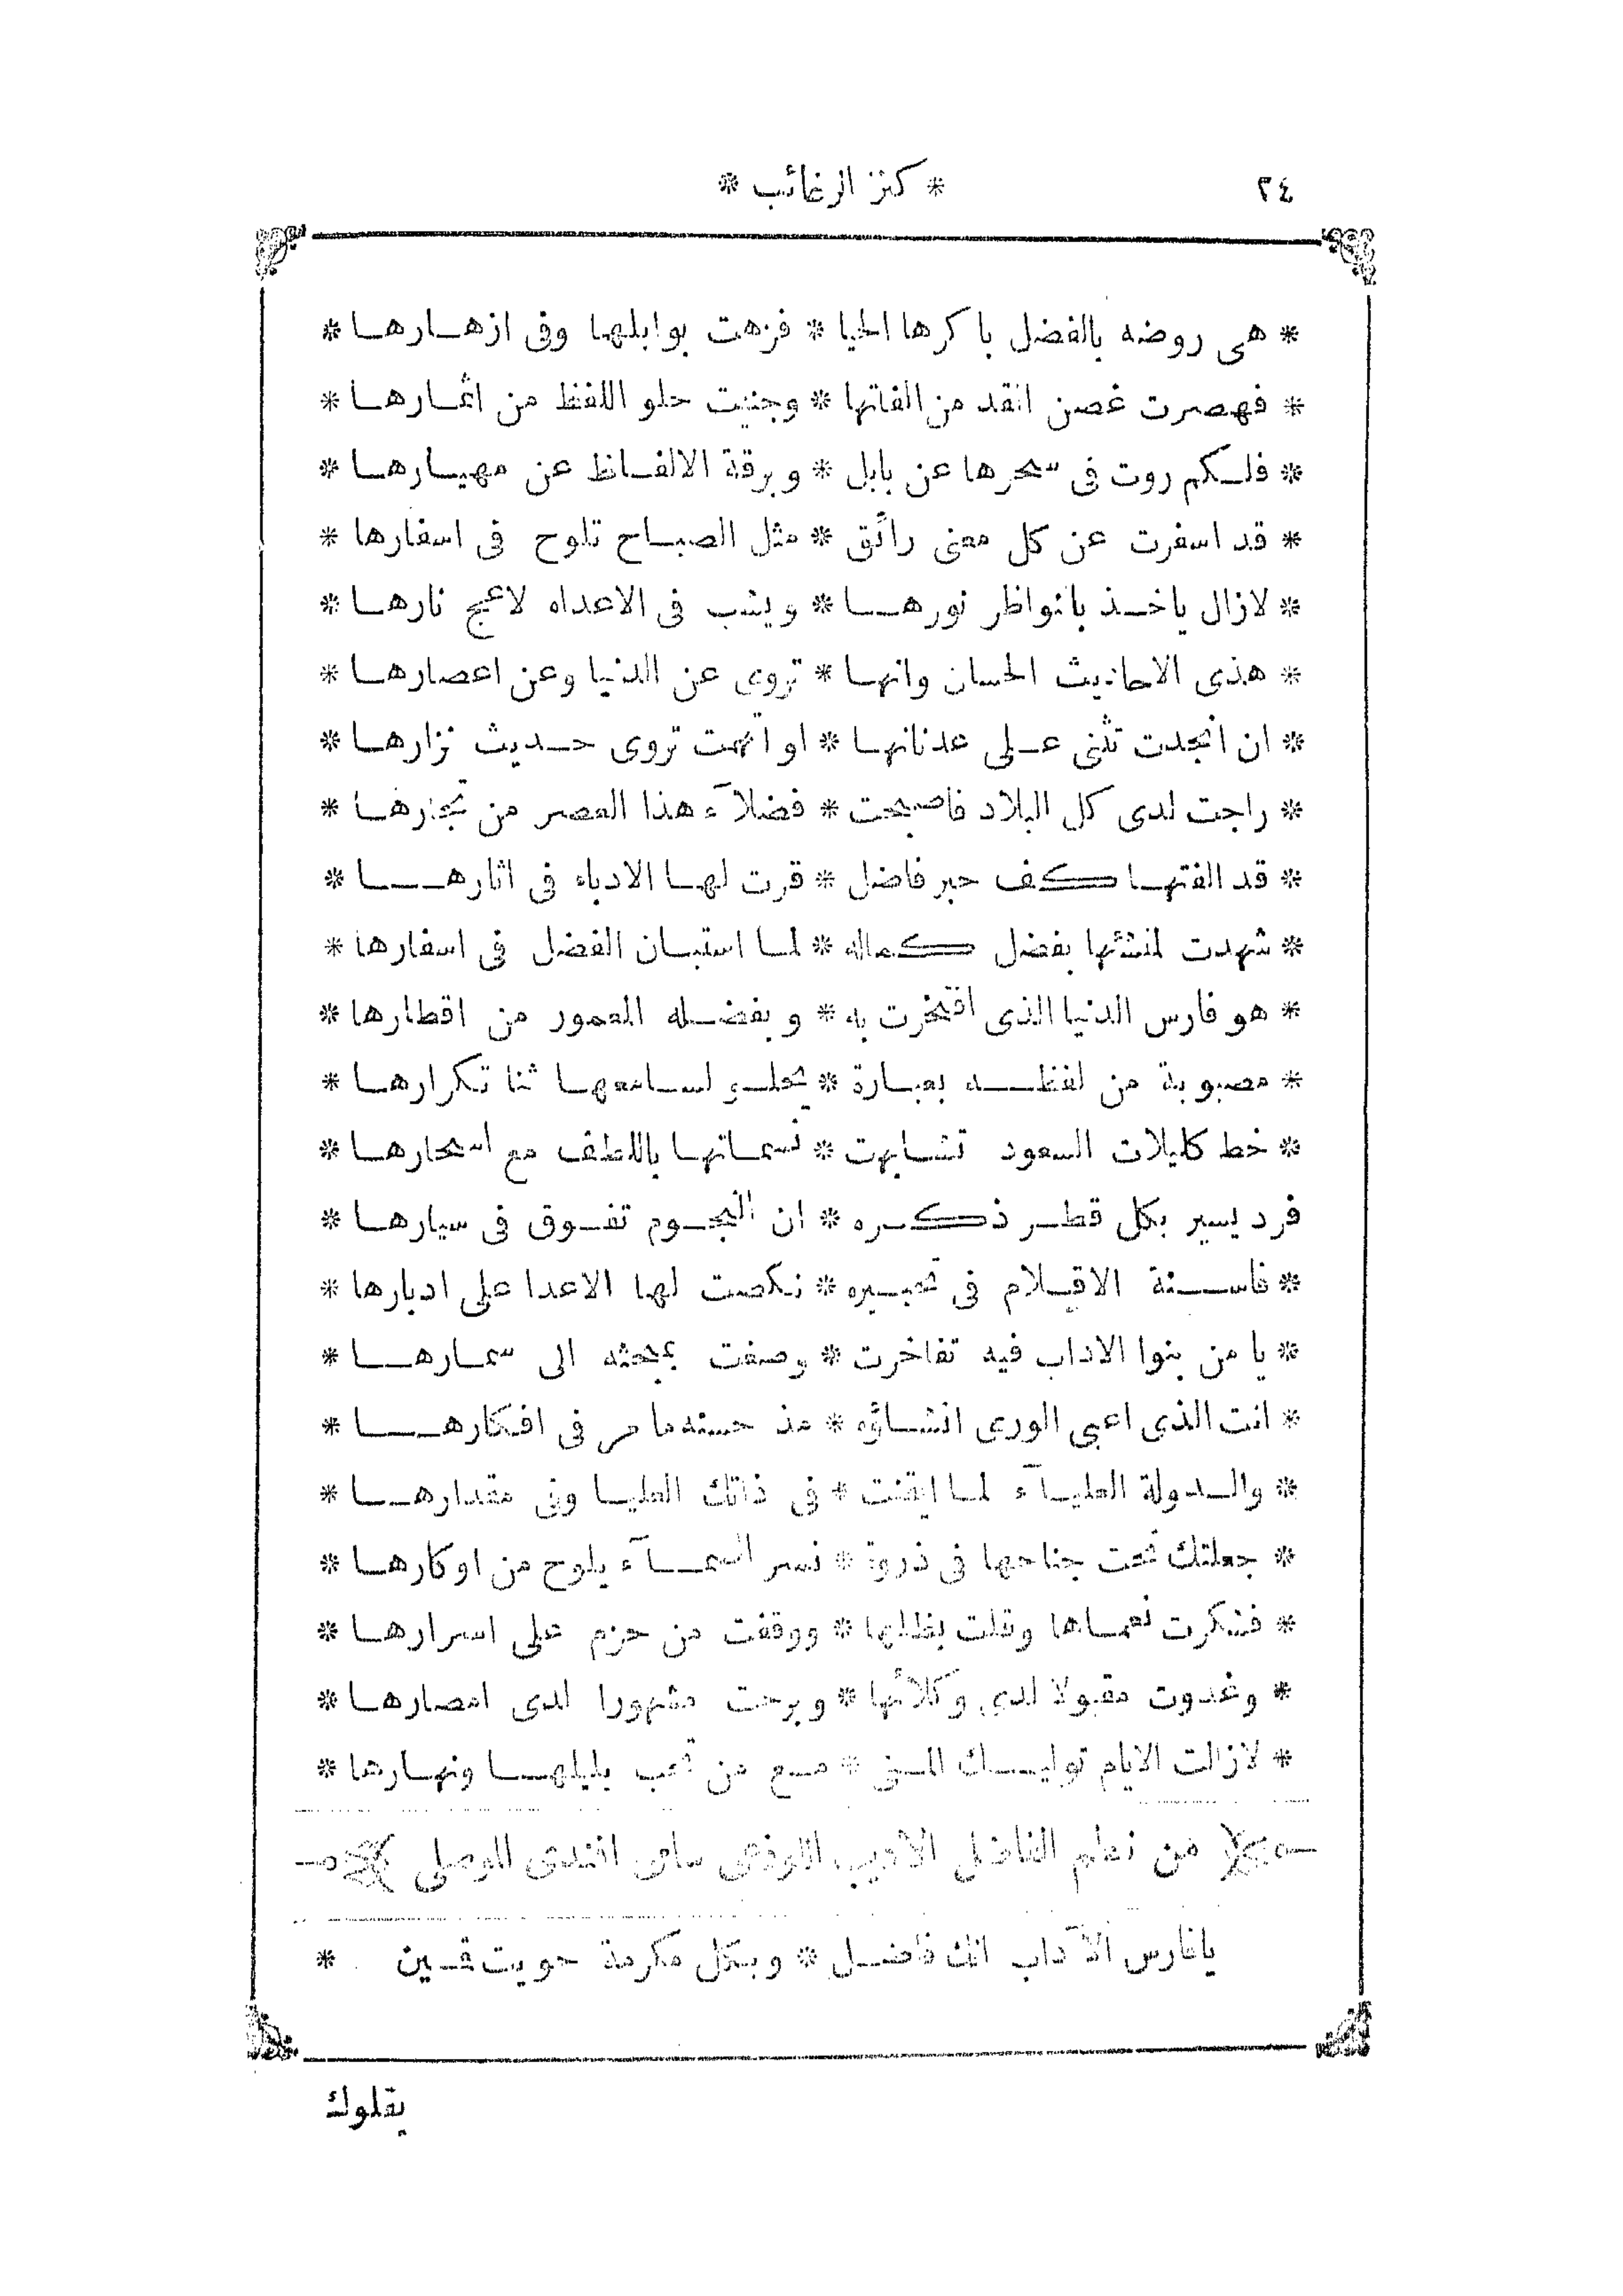 ٢٤ * كنز الرغائب *
* هى روضه بالفضل باكرها الحيا * فزهت بوابلها وفى ازهارها *
* فهصرت غصن القد من الفاتها * وجنيت حلو اللفظ من اثمارها *
* فلكم روت فى سحرها عن بابل * وبرقة الالفاظ عن مهيارها *
* قد اسفرت عن كل معنى رائق * مثل الصباح تلوح فى اسفارها *
* لازال ياخذ بالنواظر نورها * ويشب فى الاعداء لاعج نارها *
* هذى الاحاديث الحسان وانها * تروى عن الدنيا وعن اعصارها *
* ان انجدت تثنى على عدنانها * او اتهمت تروى حديث نزارها *
* راجت لدى كل البلاد فاصبحت * فضلآء هذا العصر من تجارها *
* قد الفتها كف حبر فاضل * قرت لها الادباء فى اثارها *
* شهدت لمنشئها بفضل كماله * لما استبان الفضل فى اسفارها *
* هو فارس الدنيا الذى افتخرت به * وبفضله المعمور من اقطارها *
* مصبوبة من لفظه بعبارة * يحلو لسامعها ثنا تكرارها *
* خط كليلات السعود تشابهت * نسماتها باللطف مع اسحارها *
فرد يسير بكل قطر ذكره * ان النجوم تفوق فى سيارها *
* فاسنة الاقلام فى تحبيره * نكصت لها الاعدا على ادبارها *
* يا من بنوا الاداب فيه تفاخرت * وصفت بمحثه الى سمارها *
* انت الذى اعيى الورى انشاؤه * مذ حسنه ما مر فى افكارها *
* والدولة العليآء لما ايقنت * فى ذاتك العليا وفى مقدارها *
* جعلتك تحت جناحها فى ذروة * نسر السمآء يلوح من اوكارها *
* فشكرت نعماها وقلت بظلها * ووقفت من حزم على اسرارها *
* وغدوت مقبولا لدى وكلائها * وبرحت مشهورا لدى امصارها *
* لازالت الايام توليك المنى * مع من تحب بليلها ونهارها *
من نظم الفاضل الاديب اللوذعى سامى افندى الموصلى
يافارس الآداب انك فاضل * وبكل مكرمة حويت قمين *
يقلوك